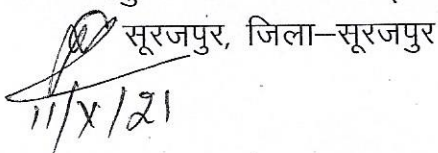 सूरजपुर, जिला–सूरजपुर
11/X/21